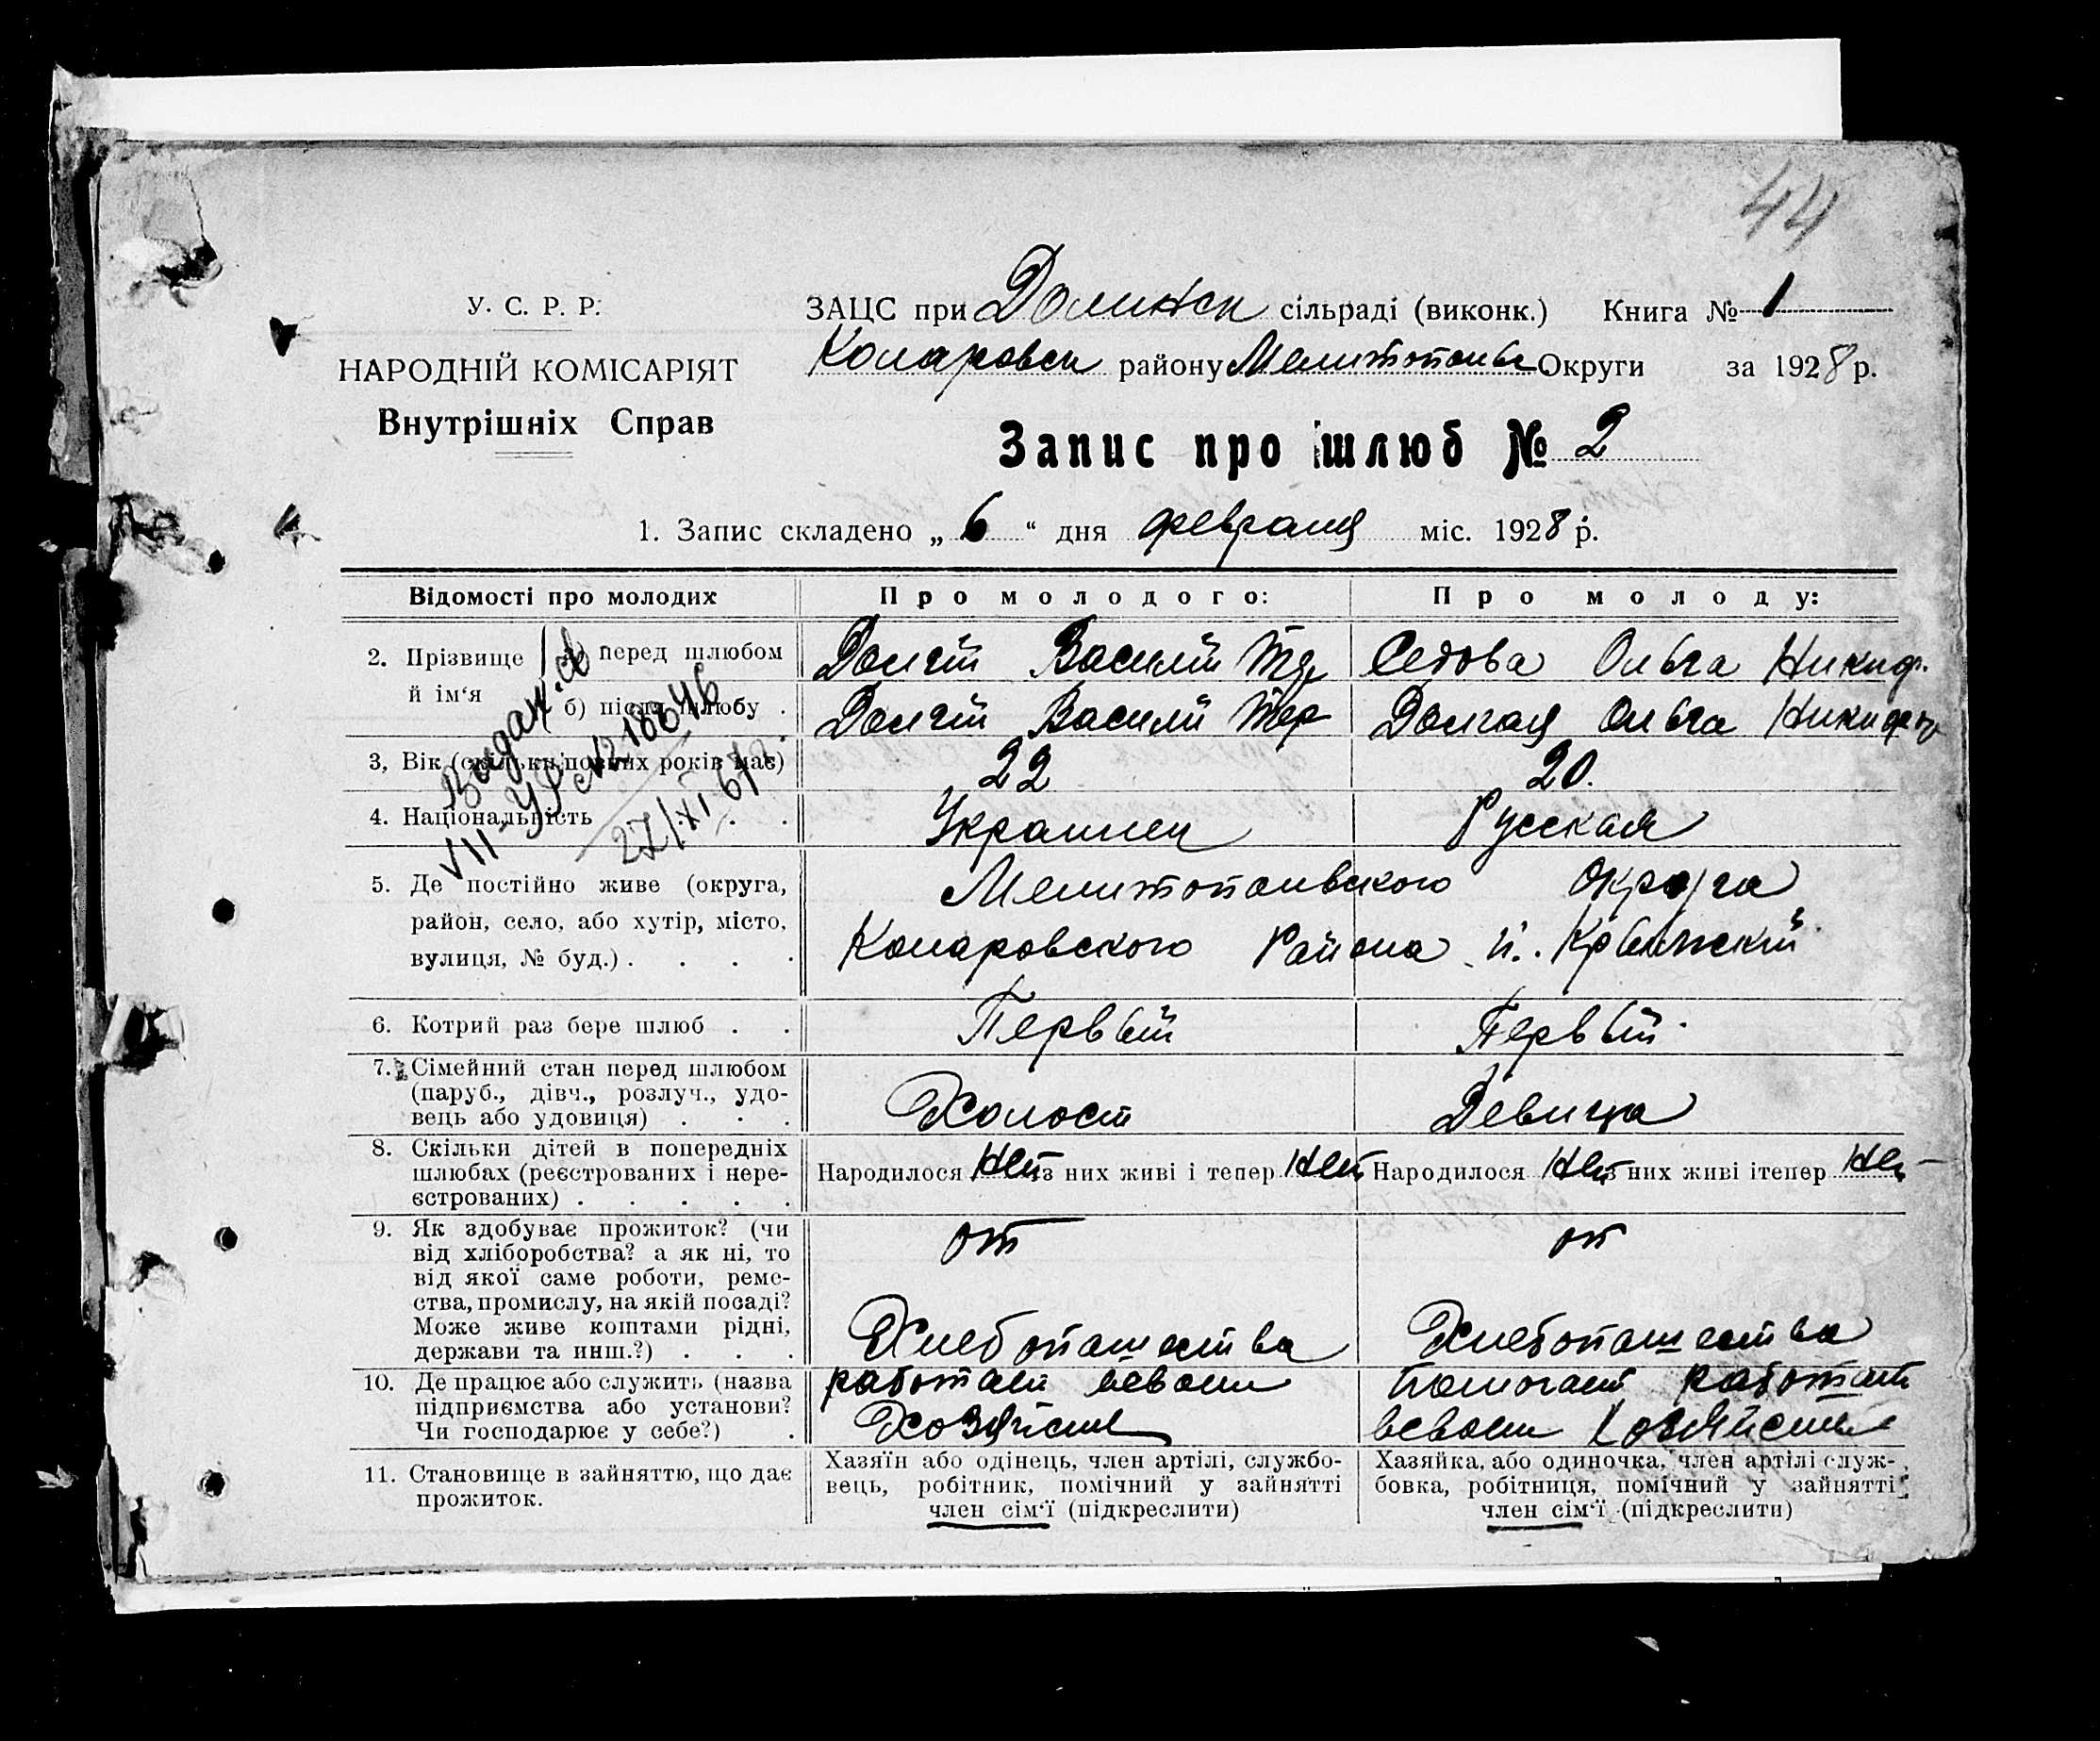 44
У. С. Р. Р.
НАРОДНІЙ КОМІСАРІЯТ
Внутрішніх Справ
ЗАЦС при Долинск сільраді (виконк.) Книга № 1
Коларовск району Мелитопольс Округи за 1928 р.
Запис про шлюб № 2
1. Запис складено „ 6 “ дня февраля міс. 1928 р.
Відомості про молодих
Про молодого:
Про молоду:
2. Прізвище й ім‘я
а) перед шлюбом
Долгій Василій
Седова Ольга Никиф.
б) після шлюбу .
Долгій Василий
Долгая Ольга
Видан.
VII-УР № 18646
27/XI 67р.
3, Вік (скільки повних років має)
22
20.
4. Національність . . .
Украинец
Русская
5. Де постійно живе (округа,
район, село, або хутір, місто,
вулиця, № буд.) . . . .
Мелитопольвского округа
Коларовского Района
6. Котрий раз бере шлюб . .
Первый
Первый.
7. Сімейний стан перед шлюбом
(паруб., дівч., розлуч., удо-
вець або удовиця) . . .
Холост
Девица
8. Скільки дітей в попередніх
шлюбах (реєстрованих і нере-
єстрованих) . . . . .
Народилося Нет з них живі і тепер Нет
Народилося Нет з них живі ітепер Нет
9. Як здобуває прожиток? (чи
від хліборобства? а як ні, то
від якої саме роботи, реме-
ства, промислу, на якій посаді?
Може живе коштами рідні,
держави та инш.?) . . .
от
Хлебопашества
от
Хлебопашества
10. Де працює або служить (назва
підприємства або установи?
Чи господарює у себе?) .
работает всвоем
Хозяйстве
помогает работать
всвоем Хозяйстве
11. Становище в зайняттю, що дає
прожиток.
Хазяїн або одінець, член артілі, службо-
вець, робітник, помічний у зайнятті
член сім‘ї (підкреслити)
Хазяйка, або одиночка, член артілі служ-
бовка, робітниця, помічний у зайнятті
член сім‘ї (підкреслити)